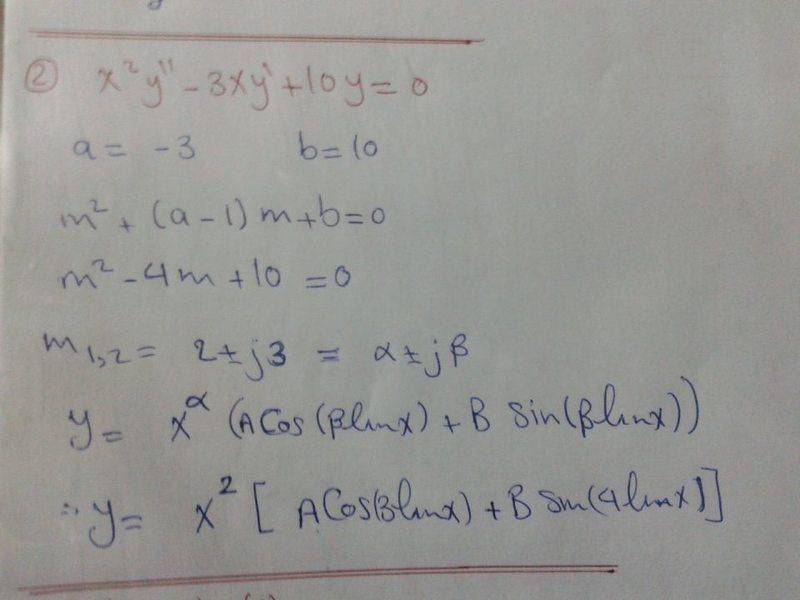 ② x²y'' - 3xy' + 10y = 0
a = -3 b = 10
m² + (a-1)m + b = 0
m² - 4m + 10 = 0
m₁,₂ = 2 ± j3 = α ± jβ
y = x^α (A Cos(β ln x) + B Sin(β ln x))
∴ y = x² [A Cos(3 ln x) + B Sin(4 ln x)]